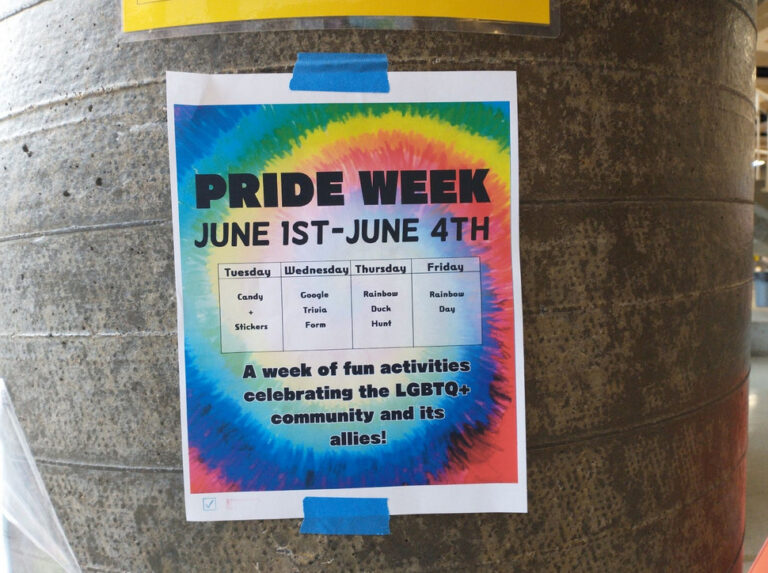 PRIDE WEEK
JUNE 1ST-JUNE 4TH
Tuesday Wednesday Thursday Friday
Candy Google Rainbow Rainbow
+ Trivia Duck Day
Stickers Form Hunt
A week of fun activities
celebrating the LGBTQ+
community and its
allies!